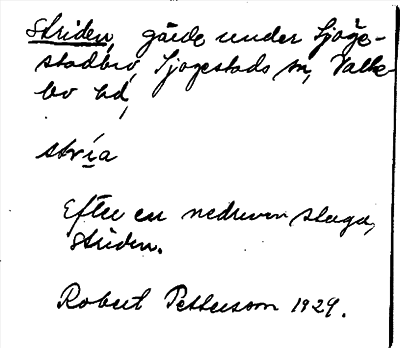 Striden, gärde under Sjöge-
stadbro, Sjögestads sn, Valke-
bo hd,
stría
Efter en nedriven stuga,
Striden.
Robert Pettersson 1929.